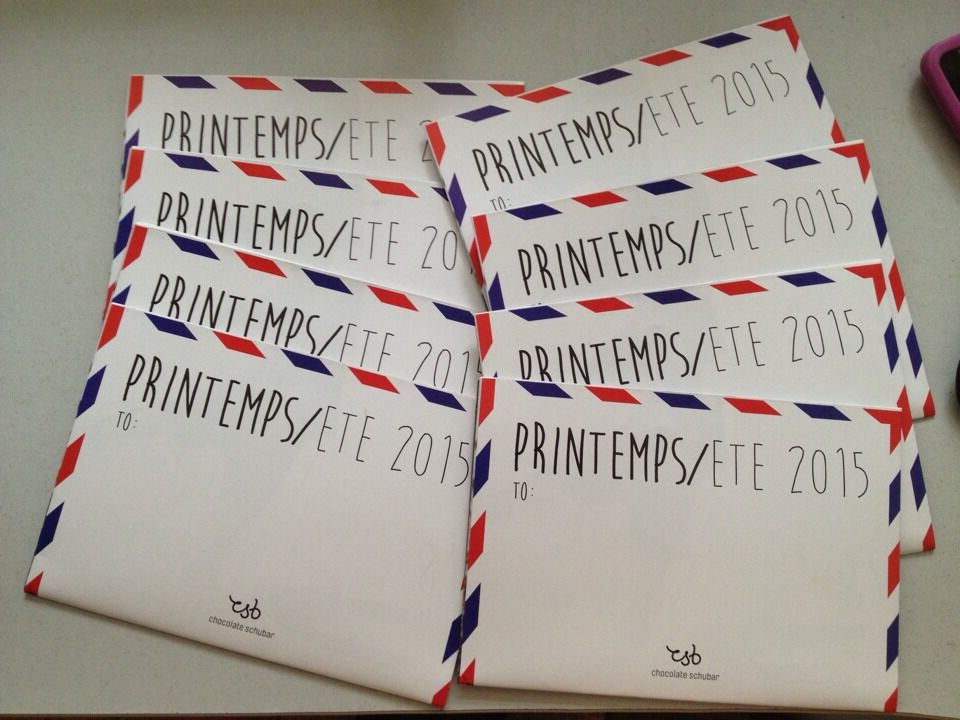 PRINTEMPS/ETE 2
PRINTEMPS/ETE 20
PRINTEMPS/ETE 201
PRINTEMPS/ETE 2015
TO:
csb
chocolate schubar
PRINTEMPS/ETE 2015
TO:
PRINTEMPS/ETE 2015
PRINTEMPS/ETE 2015
PRINTEMPS/ETE 2015
TO:
csb
chocolate schubar